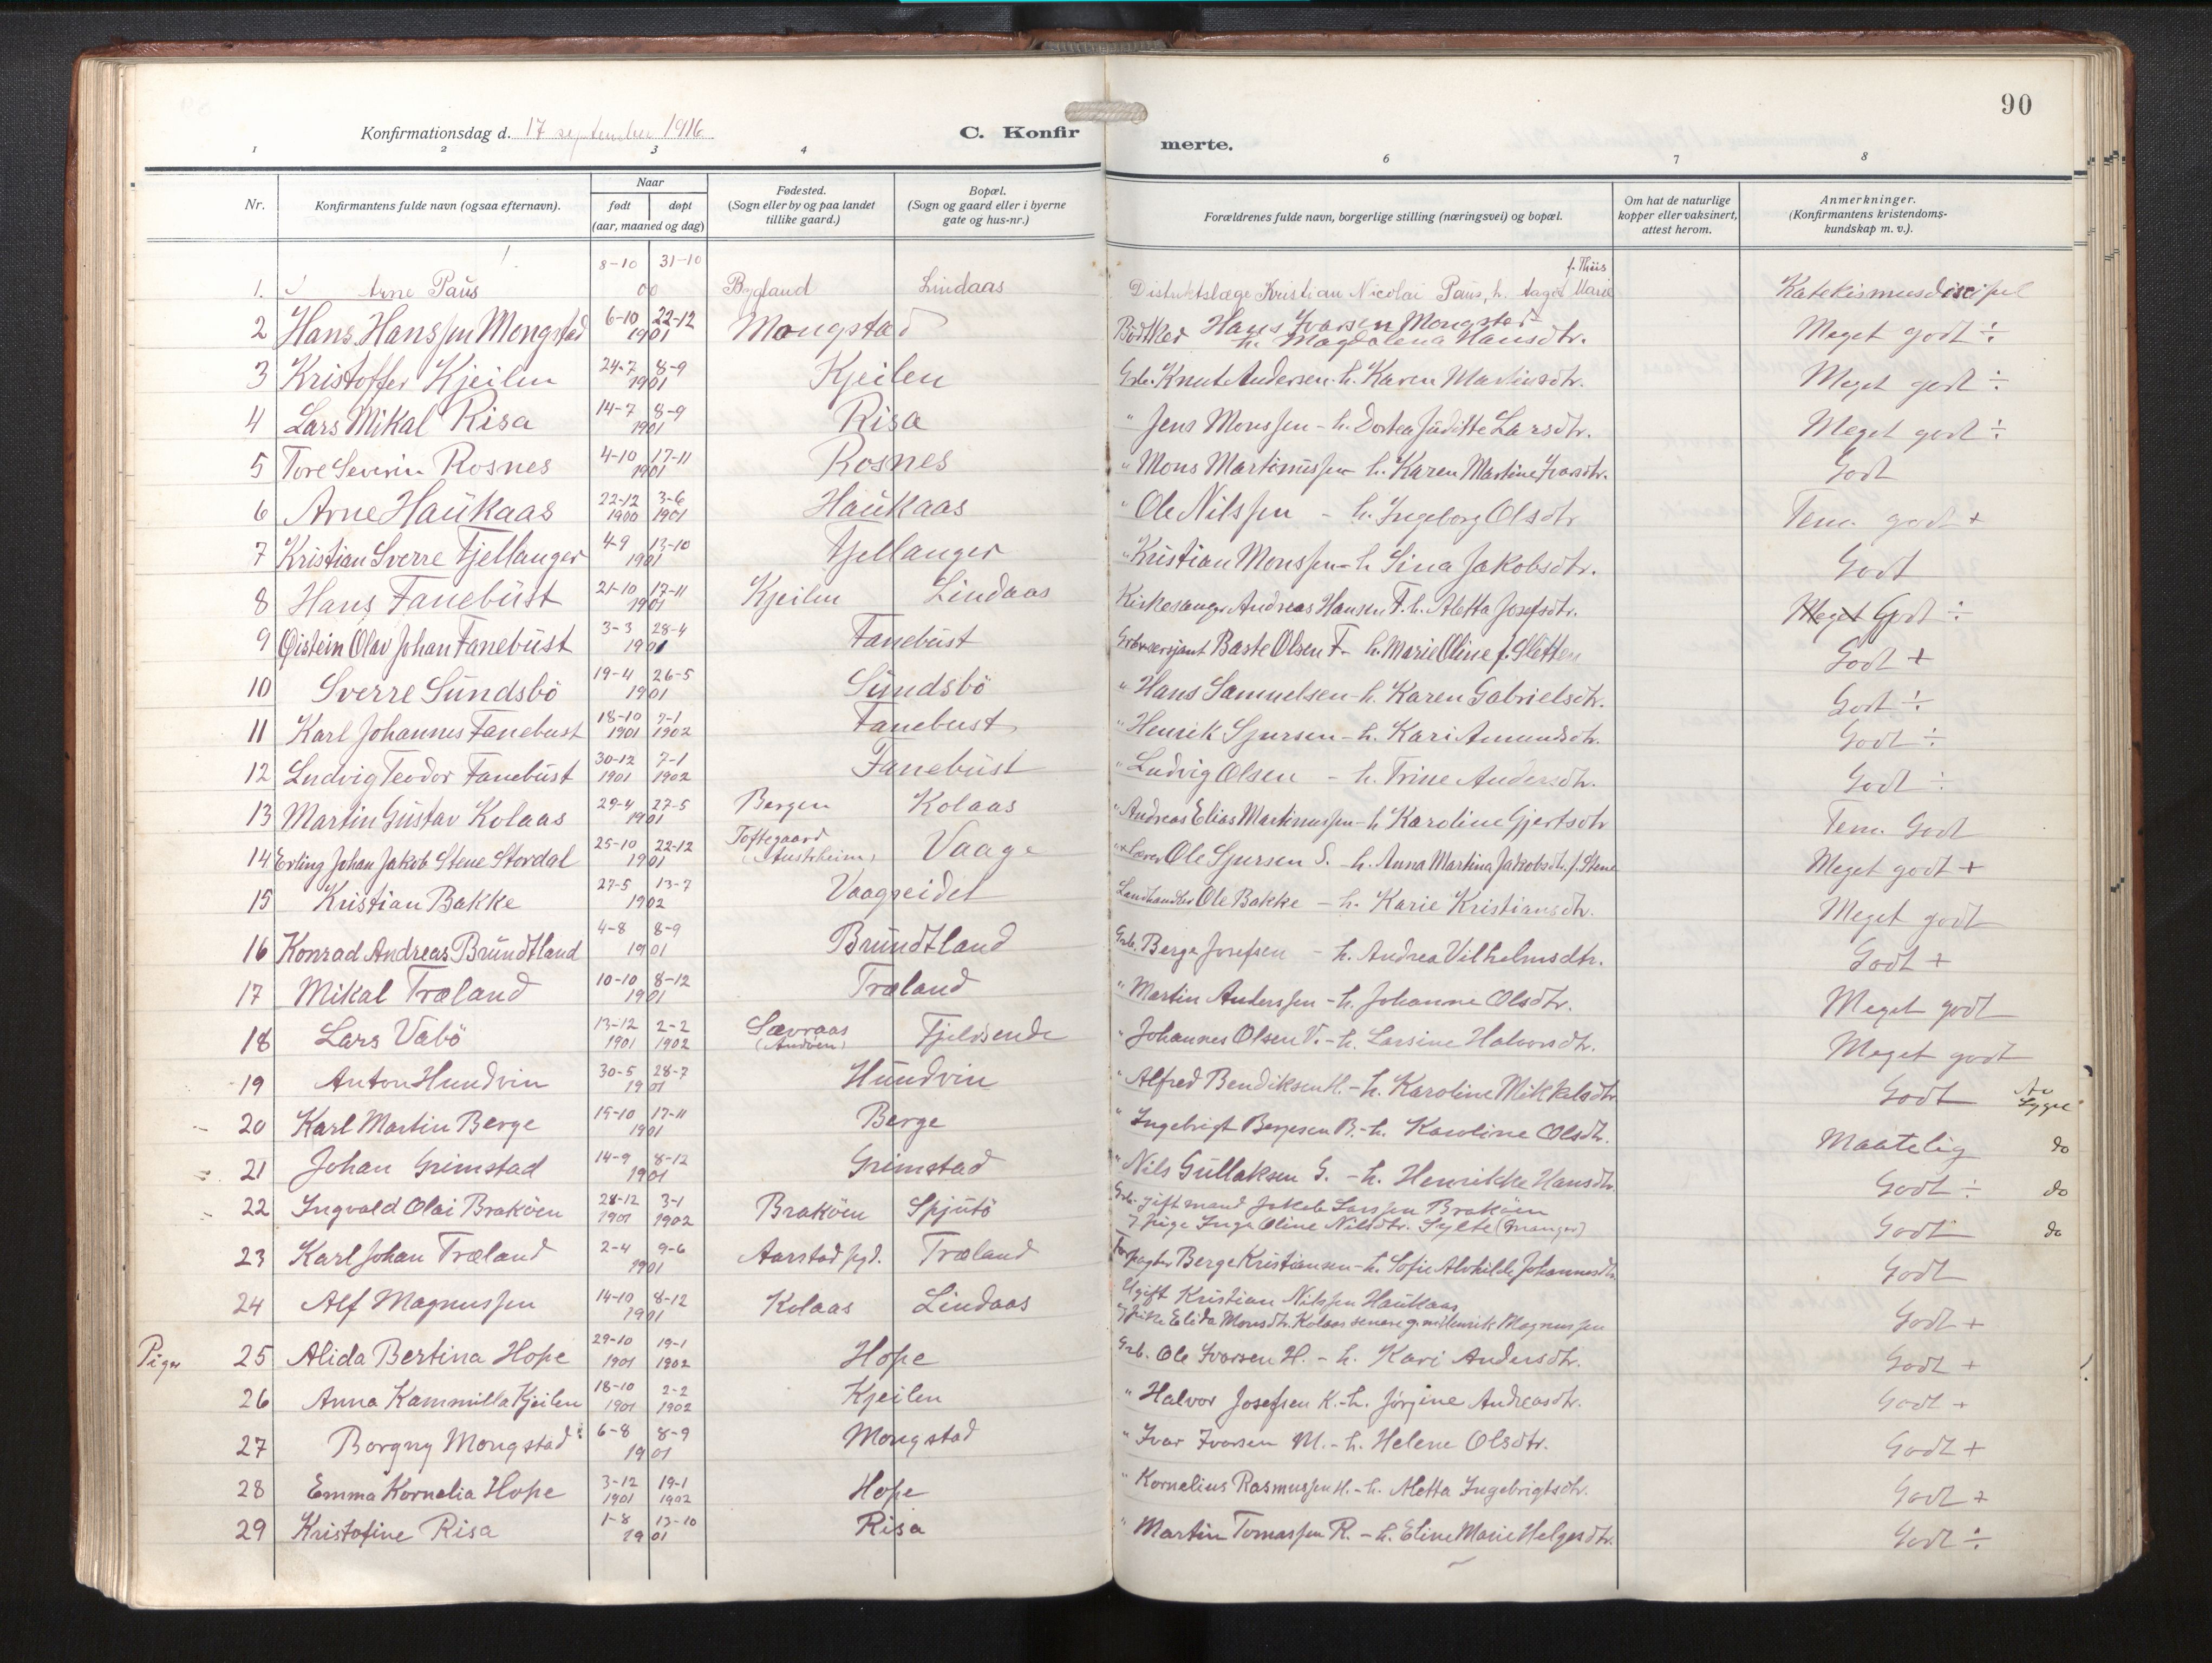 90
Konfirmationsdag d. 17 september 1916
C. Konfirmerte.
1 2 3 4 6 7 8
Nr.
Konfirmantens fulde navn (ogsaa efternavn).
Naar
født døpt
(aar, maaned og dag)
Fødested.
(Sogn eller by og paa landet
tillike gaard.)
Bopæl.
(Sogn og gaard eller i byerne
gate og hus-nr.)
Forældrenes fulde navn, borgerlige stilling (næringsvei) og bopæl.
Om hat de naturlige
kopper eller vaksinert,
attest herom.
Anmerkninger.
(Konfirmantens kristendoms-
kundskap m. v.).
1. Arne Paus 8-10 31-10 00 Bygland Lindaas Distriktslæge Kristian Nicolai Paus, h. Dagot Marie f. Thiis Katekismusdiscipel
2 Hans Hanssen Mongstad 6-10 22-12 1901 Mongstad Bödtker Hans Ivarsen Mongstad h. Magdalena Hansdtr. Meget godt ÷
3 Kristoffer Kjeilen 24-7 8-9 1901 Kjeilen Grb. Knut Andersen - h. Karen Martinsdtr. Meget godt ÷
4 Lars Mikal Risa 14-7 8-9 1901 Risa " Jens Monssen - h. Dortea Juditte Larsdtr. Meget godt ÷
5 Tore Severin Rosnes 4-10 17-11 1901 Rosnes " Mons Martinussen - h. Karen Martine Ivarsdtr. Godt
6 Arne Haukaas 22-12 1900 3-6 1901 Haukaas " Ole Nilssen - h. Ingeborg Olsdtr Tem. godt +
7 Kristian Sverre Fjellanger 4-9 13-10 1901 Fjellanger " Kristian Monssen - h Sina Jakobsdtr. Godt
8 Hans Fanebust 21-10 17-11 1901 Kjeilen Lindaas Kirkesanger Andreas Hansen F. h. Aletta Josefsdtr. Meget Godt ÷
9 Øistein Olav Johan Fanebust 3-3 28-4 1901 Fanebust Grb. sersjant Baste Olsen F - h. Marie Oline f. Sletten Godt +
10 Sverre Sundsbö 19-4 26-5 1901 Sundsbö " Hans Samuelsen - h. Karen Gabrielsdtr. Godt ÷
11 Karl Johannes Fanebust 18-10 1901 7-1 1902 Fanebust " Henrik Sjursen - h. Kari Amundsdtr. Godt ÷
12 Ludvig Teodor Fanebust 30-12 1901 7-1 1902 Fanebust " Ludvig Olsen - h. Trine Andersdtr. Godt ÷
13 Martin Gustav Kolaas 29-4 27-5 1901 Bergen Kolaas " Andreas Elias Martinussen - h Karoline Gjertsdtr Tem. Godt
14 Erling Johan Jakob Stene Stordal 25-10 22-12 1901 Toftegaard (Austrheim) Vaage " Lærer Ole Sjursen S. - h. Anna Martina Jakobsdtr. f. Stene Meget godt +
15 Kristian Bakke 27-5 13-7 1902 Vaagseidet Landhandler Ole Bakke - h. Karie Kristiansdtr. Meget godt
16 Konrad Andreas Brundtland 4-8 8-9 1901 Brundtland Grb. Berge Josefsen - h. Andrea Vilhelmsdtr. Godt +
17 Mikal Træland 10-10 8-12 1901 Træland " Martin Anderssen - h. Johanne Olsdtr. Meget godt
18 Lars Vabö 13-12 1901 2-2 1902 Sævraas (Andöen) Fjeldsende " Johannes Olsen V. - h. Larsine Halvorsdtr. Meget godt
19 Anton Hundvin 30-5 28-7 1901 Hundvin " Alfred Bendiksen H. - h. Karoline Mikkelsdtr. Godt
20 Karl Martin Berge 15-10 17-11 1901 Berge " Ingebrigt Bergesen B. - h. Karoline Olsdtr. Maatelig do
21 Johan Grimstad 14-9 8-12 1901 Grimstad " Nils Gullaksen G. - h. Henrikke Hansdtr. Godt ÷ do
22 Ingvald Olai Braköen 28-12 1901 3-1 1902 Braköen Spjutö Grb. gift mand Jakob Larssen Braköen
Pige Inga Oline Nilsdtr. Sylte (Manger) Godt do
23 Karl Johan Træland 2-4 9-6 1901 Aarstad pgd. Træland Forpagter Berge Kristiansen - h. Sofie Alvhilde Johannesdtr. Godt
24 Alf Magnussen 14-10 8-12 1901 Kolaas Lindaas Ugift Kristian Nilssen Haukaas
Pike Elida Monsdtr. Kolaas senere g. m. Henrik Magnussen Godt +
Piger 25 Alida Bertina Hope 29-10 1901 19-1 1902 Hope Grb. Ole Ivarsen H. - h. Kari Andersdtr. Godt +
26 Anna Kammilla Kjeilen 18-10 1901 2-2 1902 Kjeilen " Halvor Josefsen K. - h. Jørgine Andreasdtr. Godt +
27 Borgny Mongstad 6-8 8-9 1901 Mongstad " Ivar Ivarsen M. - h. Helene Olsdtr. Godt +
28 Emma Kornelia Hope 3-12 1901 19-1 1902 Hope " Kornelius Rasmussen H. - h. Aletta Ingebrigtsdtr. Godt +
29 Kristofine Risa 1-8 13-10 1901 Risa " Martin Tomassen R. - h. Eline Marie Helgesdtr. Godt ÷